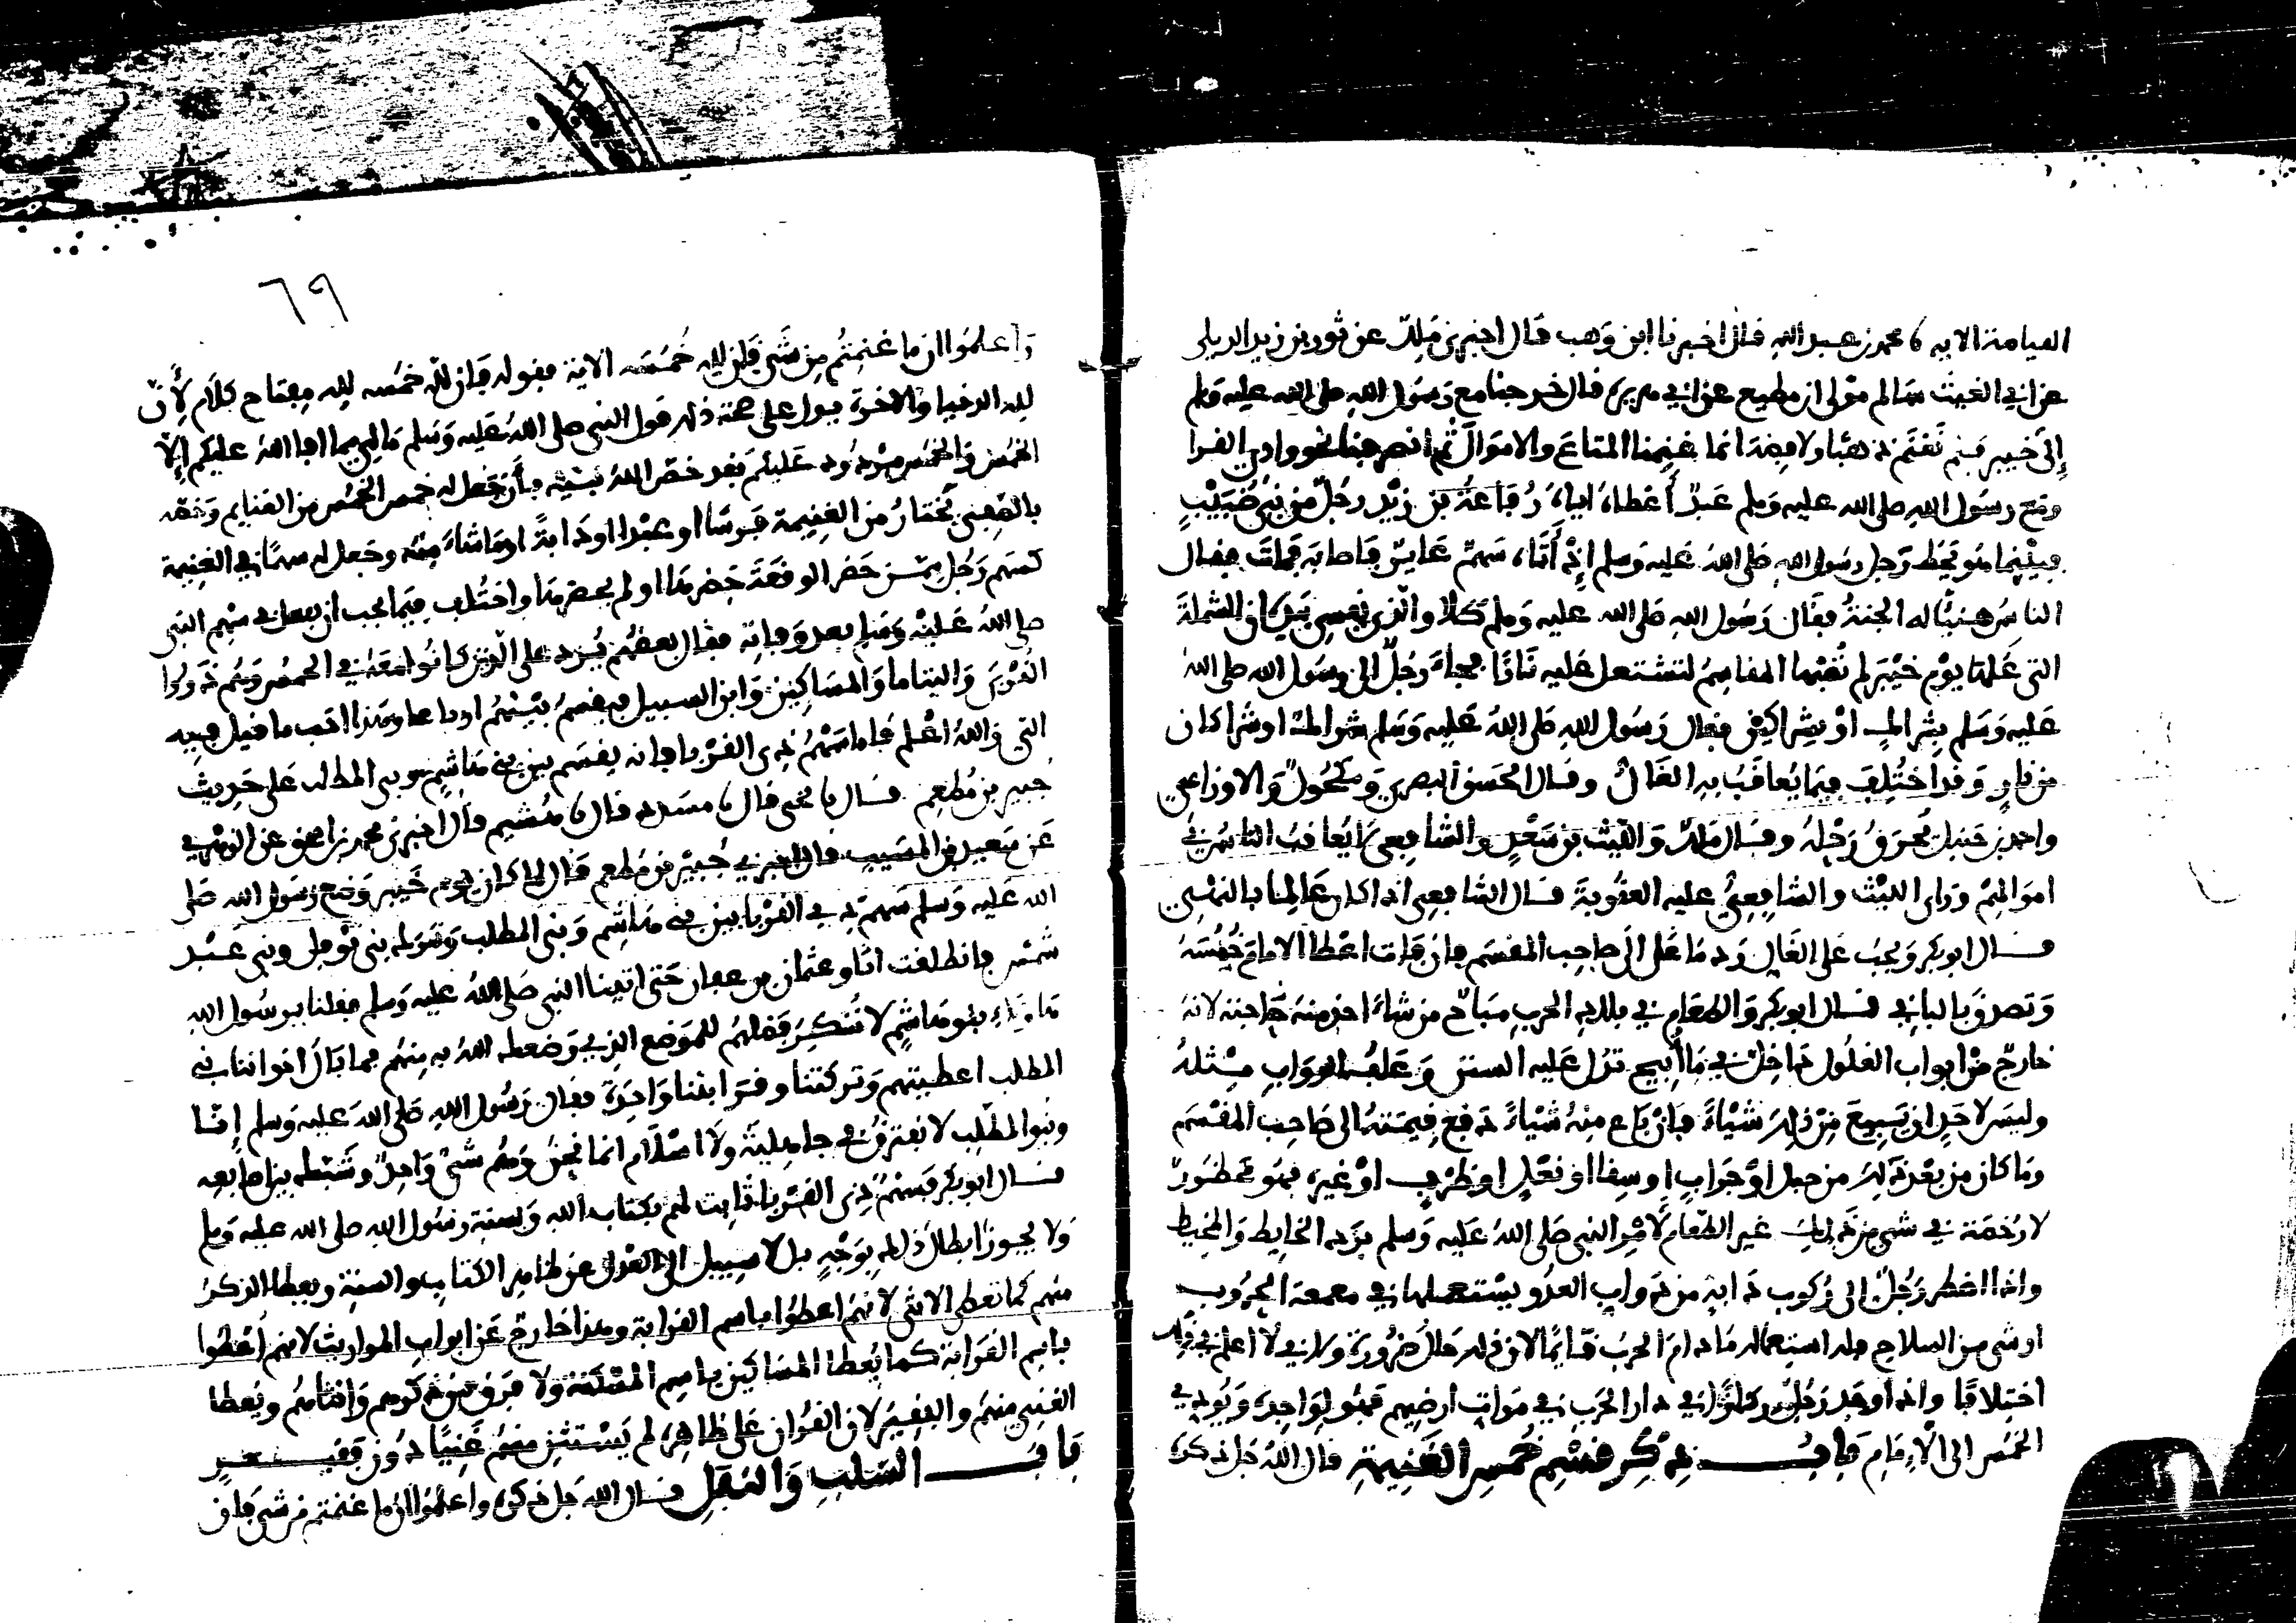 القيامة الآية نا محمد بن عبد الله قال اخبرنا ابن وهب قال اخبرني ملك عن ثور بن زيد الديلي
عن ابي الغيث سَالم مَوْلى ابن مطيع عن ابي هريرة قال خرجنا مع رَسُول الله صلى الله عليه وسلم
إلى خَيبر فلم نَغْنَم ذهبًا ولا فِضة انما غنِمنا المتاعَ والاموَالَ ثم انصرفنا نحو وادي القرا
ومَع رسُول الله صلى الله عليه وسلم عَبدٌ أعْطاهُ اياهُ رُفاعةُ بن زَيْد رجُلٌ من بني ضُبَيْبٍ
فبيْنما هُو يَحُط رَحل رسُول الله صَلى الله عَليه وَسلم إذْ أتاهُ سَهمٌ عَايرٌ فاصابَه فمات فقال
الناسُ هنيئًا له الجنةُ فقال رَسُول الله صَلى الله عليه وسلم كَلا والّذي نفسِي بيَدِه ان الشملةَ
التي غَلها يوْم خَيْبَر لم تُصِبْها المقاسِمُ لتشتعل عَليه نَارًا فجاء رَجُلٌ الى رسُول الله صلى الله
عليه وَسَلم بشراكٍ اوْ بشراكيْن فقال رَسُول الله صَلى اللهُ عَليه وَسَلم شراكٌ او شراكان
من نارٍ وَقد اختُلِفَ فِيما يُعاقَبُ به الغَالُّ وقال الحَسَن البصري وَمكحُولٌ وَالاوزاعي
واحمد بن حَنبل يُحرَقُ رَحْلهُ وقال ملكٌ وَالليْث بن سَعْدٍ والشافِعي لا يُعاقبُ الناسُ في
امَوالهِمْ وَراى الليْث والشافِعِيُّ عليه العقُوبَةَ قال الشافعي اذا كان عَالِمًا بالنهْي
قال ابو بكر وَيجبُ عَلى الغَالِّ رَد ما غَل الى صَاحب المَقسَم فان فات اعْطا الامامَ خُمُسَهُ
وَتصدّق بالباقي قال ابو بكر وَالطعَام في بلاد الحَربِ مبَاحٌ من شاءَ اخذ منه حاجته لانهُ
خارجٌ من ابواب الغلُول دَاخِلٌ في مَا أبيح تدُل عَليه السننُ وَعَلفُ الدوَابِ مِثلهُ
وليسَ لاحَدٍ ان يَبيعَ مِنْ ذلكَ شيْاءً فانْ بَاع منهُ شيْاءً دَفع قيمتهُ الى صَاحِب المقْسَم
ومَا كان من بعْد ذَلِكَ من حبل اوْ جَرابٍ او سِقا او نعْلٍ او ظَرْفٍ اوْ غيره فهُو مَحظورٌ
لا رُخصَة في شي من ذلِكَ غير الطعَام لامْر النبي صَلى اللهُ عَليه وَسلم برَد الخايطِ وَالمخيط
واذا اضطر رَجُلٌ الى رُكوب دَابة من دَوابِ العدُو يسْتعملها في معمعة الحرُوب
او شي من السلاح فله استعماله مَا دامَ الحَربُ قايمًا لان ذلك حَالُ ضَرُورَة وَلا في لا اعلم في ذلك
اختِلافًا واذا وجَد رَجُلٌ ركازًا في دار الحَرب في مَوات ارضِهم فهُو لوَاجِده وَيؤدي
الخمُس الى الإمَام بابُ ذِكْرِ قسْمِ خُمسِ الغَنِيمةِ قال اللهُ جَل ذكره
٦٩
وَاعلمُوا ان ما غنمتُم مِن شَي فان للهِ خُمُسَه الاية فقوله فان للهِ خُمُسه لله مِفتاح كلام لأنّ
لله الدنيا وَالاخرة يدل على صحة ذلك قول النبي صلى اللهُ عَليه وَسَلم مَا لي مما افا اللهُ عليكم إلا
الخمُس وَالخمُس مرْدُود عَليكُم فقد خصّ اللهُ نبيّه بأن جَعل له خمسَ الخُمُس من الغنايم وَخصّه
بالصَّفي يختارُ من الغنِيمة فَرسًا او عَبْدا او دَابةً او مَا شاءَ مِنْه وجَعل له سهمًا في الغنِيمة
كسهم رَجُل ممّن حَضر الوقعَة حَضرها او لم يحضرها واختُلِف فيمَا يجب ان يفعل في سهم النبي
صلى اللهُ عَليْه وَسلم بعد وَفاتِه فقال بعضُهم يُرَد على الذين كانوُا معَهُ في الخمُس وَهُم ذَوُوا
القُرْبَى وَاليتاما وَالمسَاكِين وَابن السبيل فيقسمُ بيْنهُم ارباعا وهَذا احَب ما قيل فِيه
الي وَاللهُ اعْلم فامّا سَهْمُ ذي القُرْبا فانه يقسَم بين بني هَاشِم وبني المطلب عَلى حَدِيث
جُبير بن مُطعِم قال نا يحيى قال نا مسَدد قال نا هُشيم قال اخبرني محمد بن اسحق عن الزهْري
عَن سَعيد بن المسَيبِ قال اخبرني جُبيْر بن مُطعم قال لما كان يومُ خَيبر وَضع رَسول الله صَلى
الله عَليه وَسلم سَهم ذي القرْبا بين بني هَاشِم وَبني المطلب وَترَك بني نوْفل وبني عَبْد
شمْسٍ فانطلقت انَا وعثمان بن عفان حَتى اتينا النبي صَلى اللهُ عليه وَسلم فقلنا يرسُول اللهِ
هاؤلاءِ بنو هَاشِم لا نُنكِرُ فَضلهُم للمَوضع الذِي وَضعك اللهُ به مِنهُم فما بَال اخواننا بني
المطلب اعطيتهم وَتركتنا وقرَابتنا وَاحِدة فقال رَسُول اللهِ صَلى اللهَ عَليه وَسلم إنا
وبَنو المطّلِب لا نفترقُ في جاهِليّة وَلا اسْلام انما نحْنُ وَهُم شيْءٌ وَاحِدٌ وشَبّك بين اصَابعِه
قال ابو بكر فسَهْمُ ذِي القُرْبا ثابت لهم بكتاب الله وَبسنة رسُول الله صَلى الله عليه وسلم
وَلا يجوزُ ابطالُ ذلك بوَجْهٍ بل لا سبيل الى العُدُل عن ظاهِر الكتابِ والسنةِ ويعطا الذكرُ
منهم كما تعطى الانثى لانهُمُ اعطُوا باسم القرابة وهذا خارجٌ عَن ابواب المواريث لانهم أُعْطُوا
باسم القرَابة كما يُعطا المسَاكين باسمِ المسْكَنة ولا فرق بين ذكورهم وَإناثهُم ويُعطا
الغني منهُم والفقِيرُ لان القرْان عَلى ظاهره لم يَسْتثن منهمُ غَنِيًا دُون فقيرٍ
بَابُ السَّلبِ وَالنفَلِ قال الله جَل ذكره واعلمُوا ان ما غنمتم من شي فان